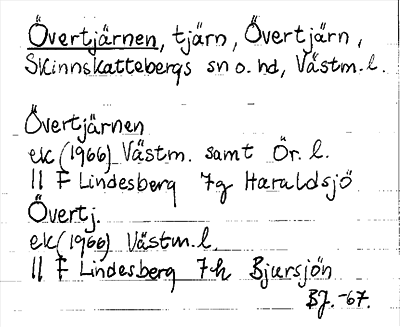 Övertjärnen, tjärn, Övertjärn,
Skinnskattebergs sn o. hd, Västm.l.
Övertjärnen
ek (1966) Västm. samt Ör. l.
11 F Lindesberg 7g Haraldsjö
Övertj.
ek (1966) Västm.l.
11 F Lindesberg 7h Bjursjön
BJ.-67.